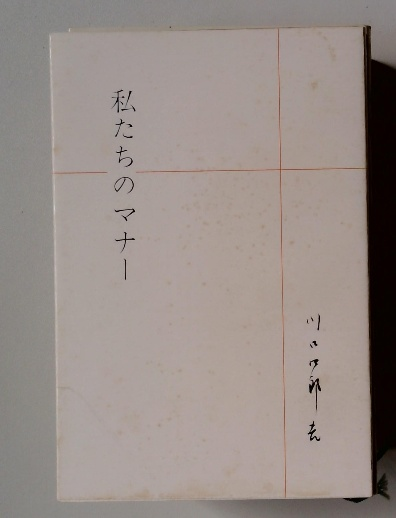 私たちのマナー
川口四郎吉